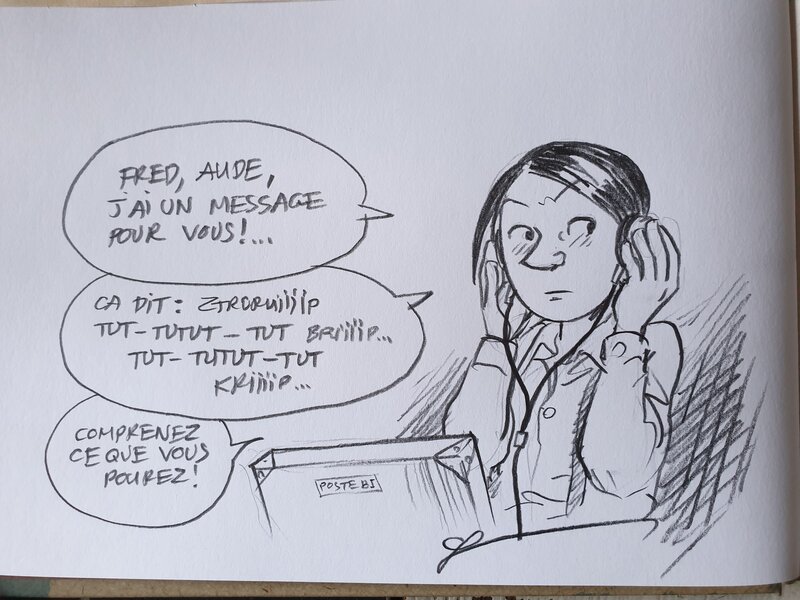 FRED, AUDE,
J'AI UN MESSAGE
POUR VOUS!...
CA DIT : ZTRORUiiiiiP
TUT-TUTUT-TUT BRiiiiP...
TUT-TUTUT-TUT
KRiiiiP...
COMPRENEZ
CE QUE VOUS
POUREZ!